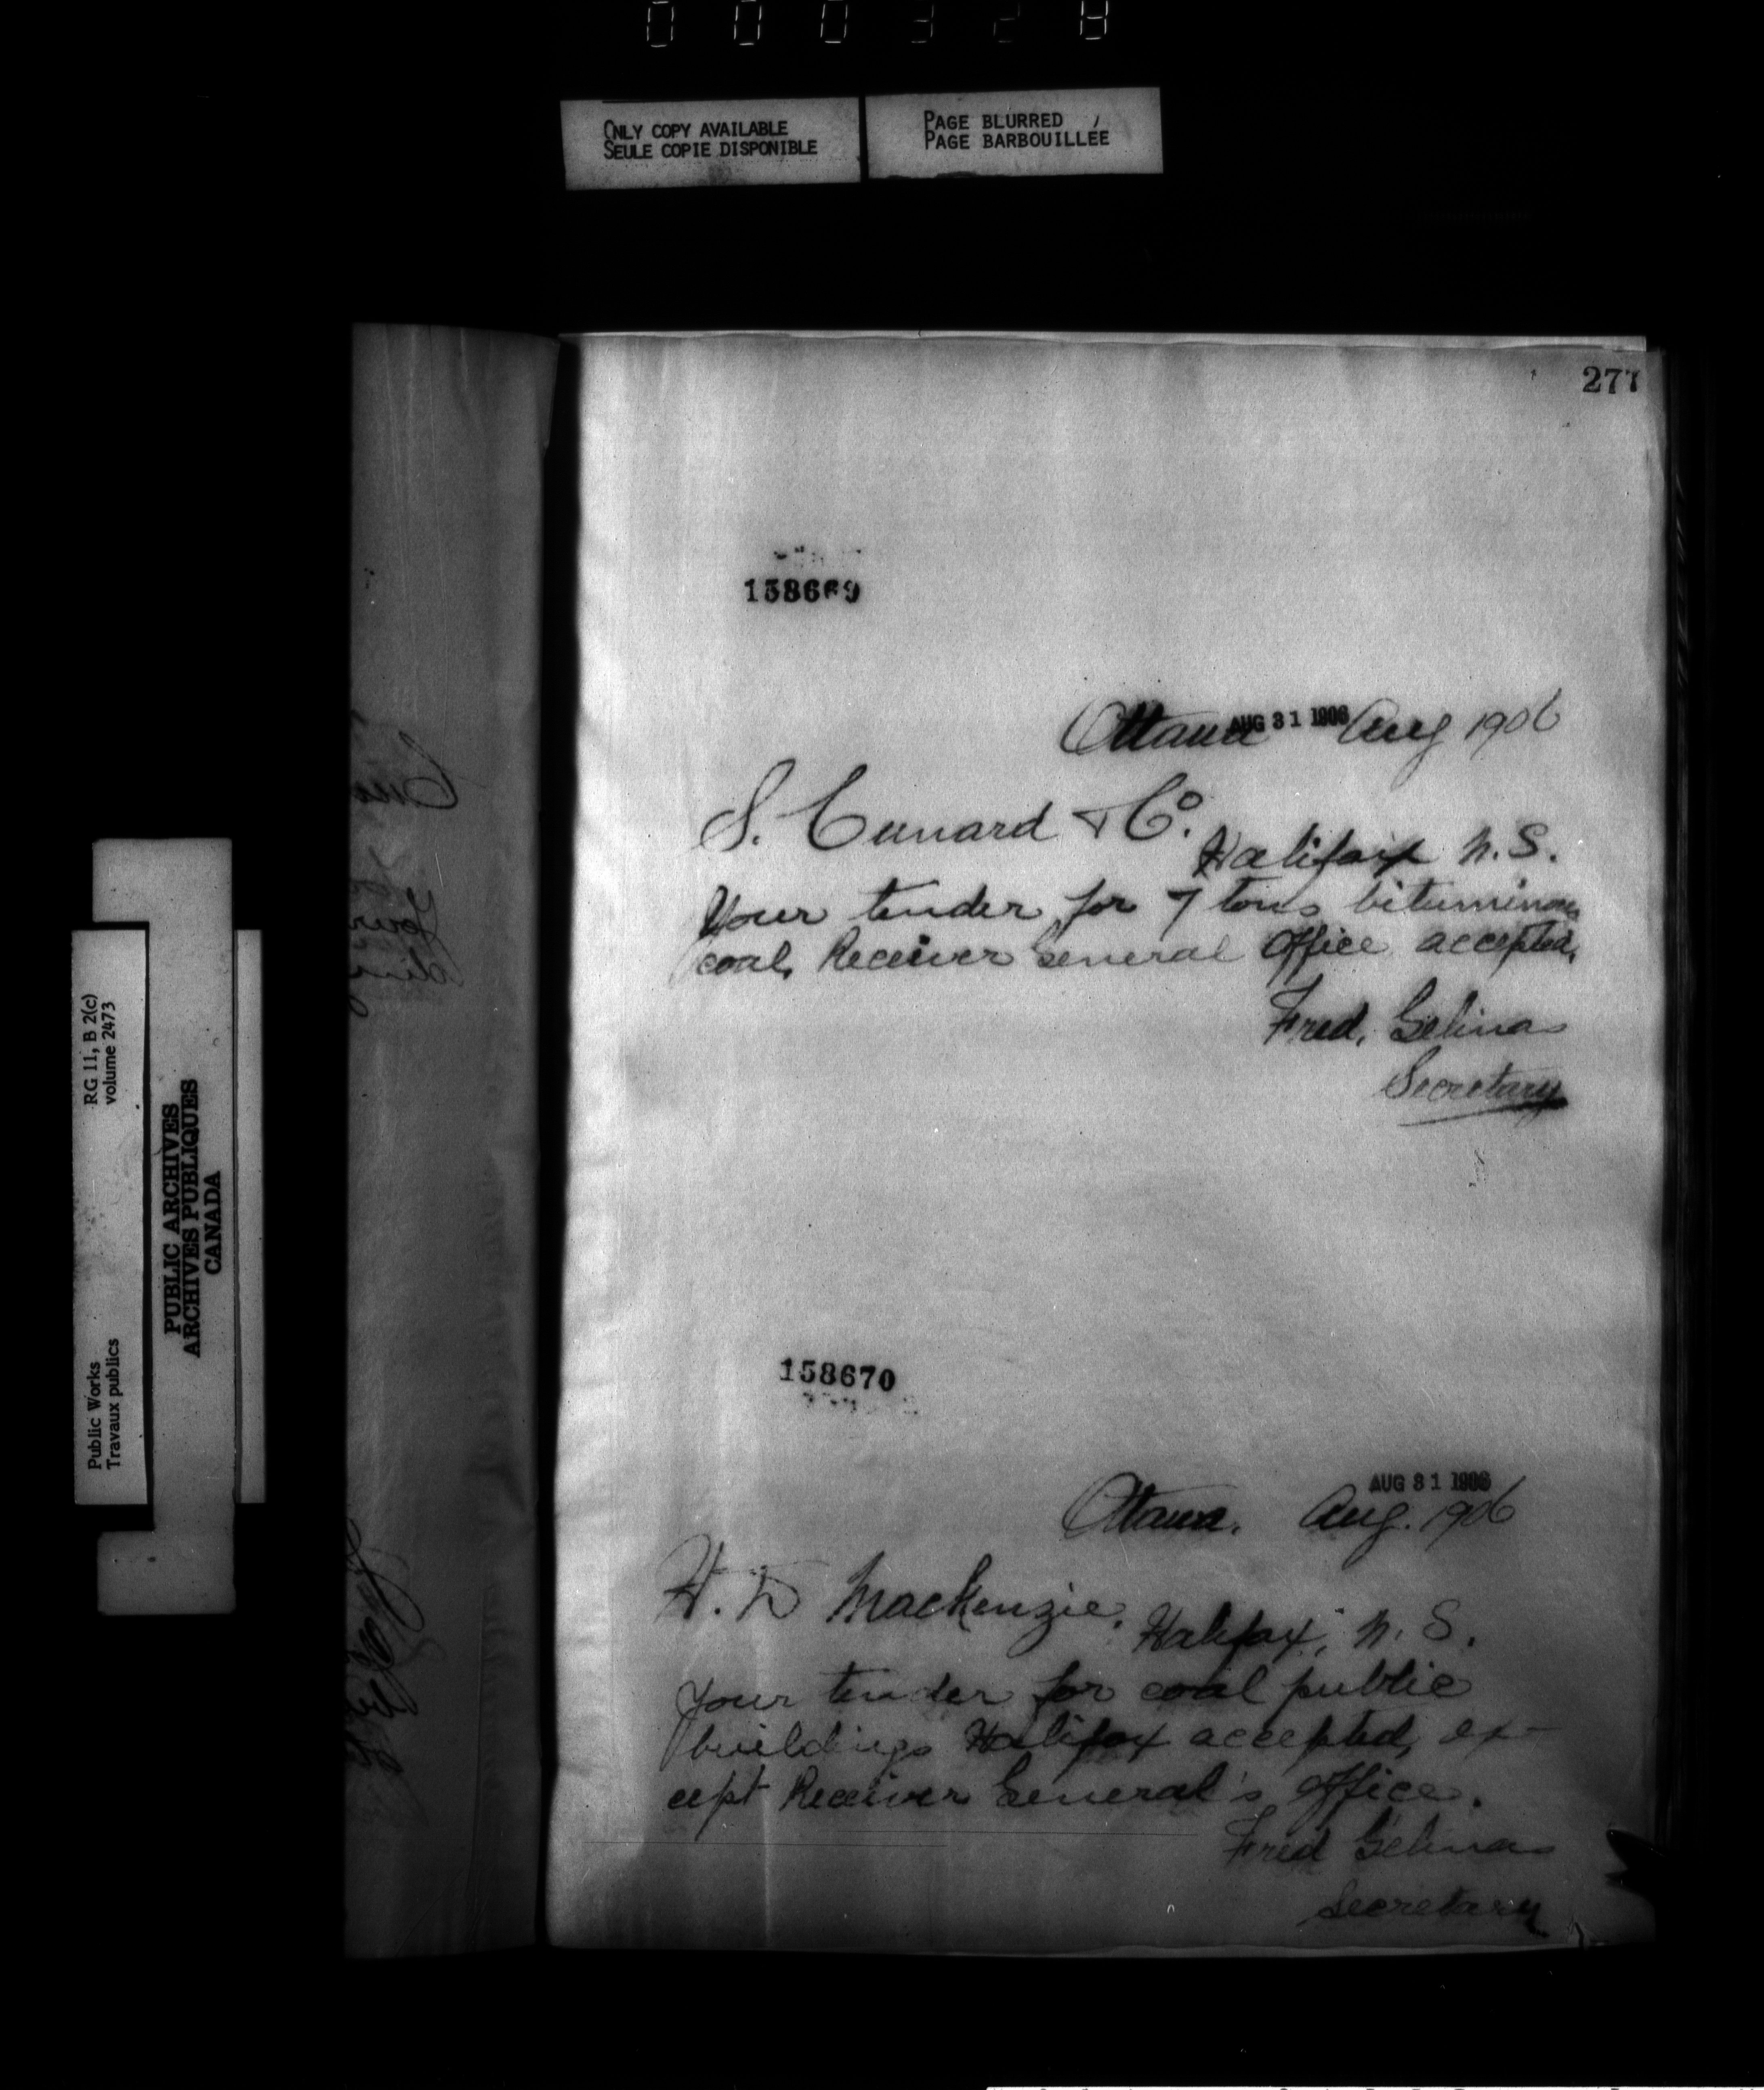 ONLY COPY AVAILABLE
SEULE COPIE DISPONIBLE
PAGE BLURRED
PAGE BARBOUILLEE
277
158669
Ottawa AUG 31 1906 Aug 1906
S. Cunard & Co.
Halifax N.S.
Your tender for 7 tons bituminous
coal, Receiver General Office accepted.
Fred. Gelinas
Secretary
158670
AUG 31 1906
Ottawa. Aug. 1906
H. D Mackenzie,
Halifax, N. S.
Your tender for coal public
buildings Halifax accepted, ex-
cept Receiver General's Office.
Fred Gelinas
Secretary
RG 11, B 2(c)
volume 2473
Public Works
Travaux publics
PUBLIC ARCHIVES
ARCHIVES PUBLIQUES
CANADA